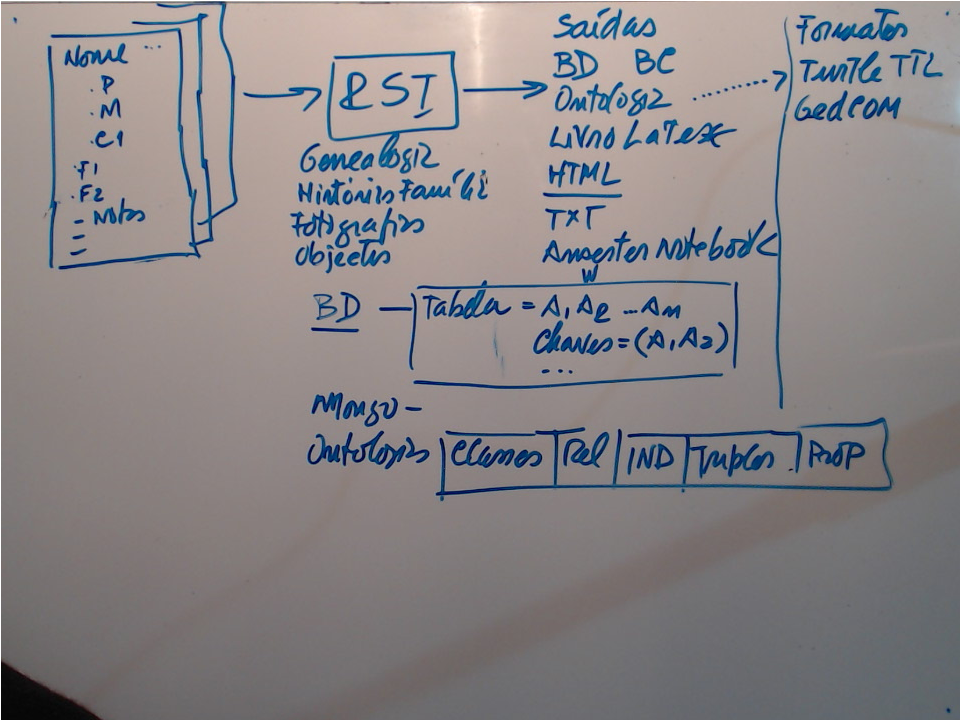 Nome ...
. P
. M
. C1
. F1
. F2
- Notas
-
-
RSI
Genealogia
Histórias Famíli
Fotografias
Objectos
Saídas
BD BC
Ontologia
Livro Latex
HTML
TXT
Ansester Notebook
W
Formatos
Turtle TTL
GedCOM
BD - Tabela = A1 A2 ... An
Chaves = (A1 A2)
...
Mongo -
Ontologias Classes Rel IND Triplos Prop